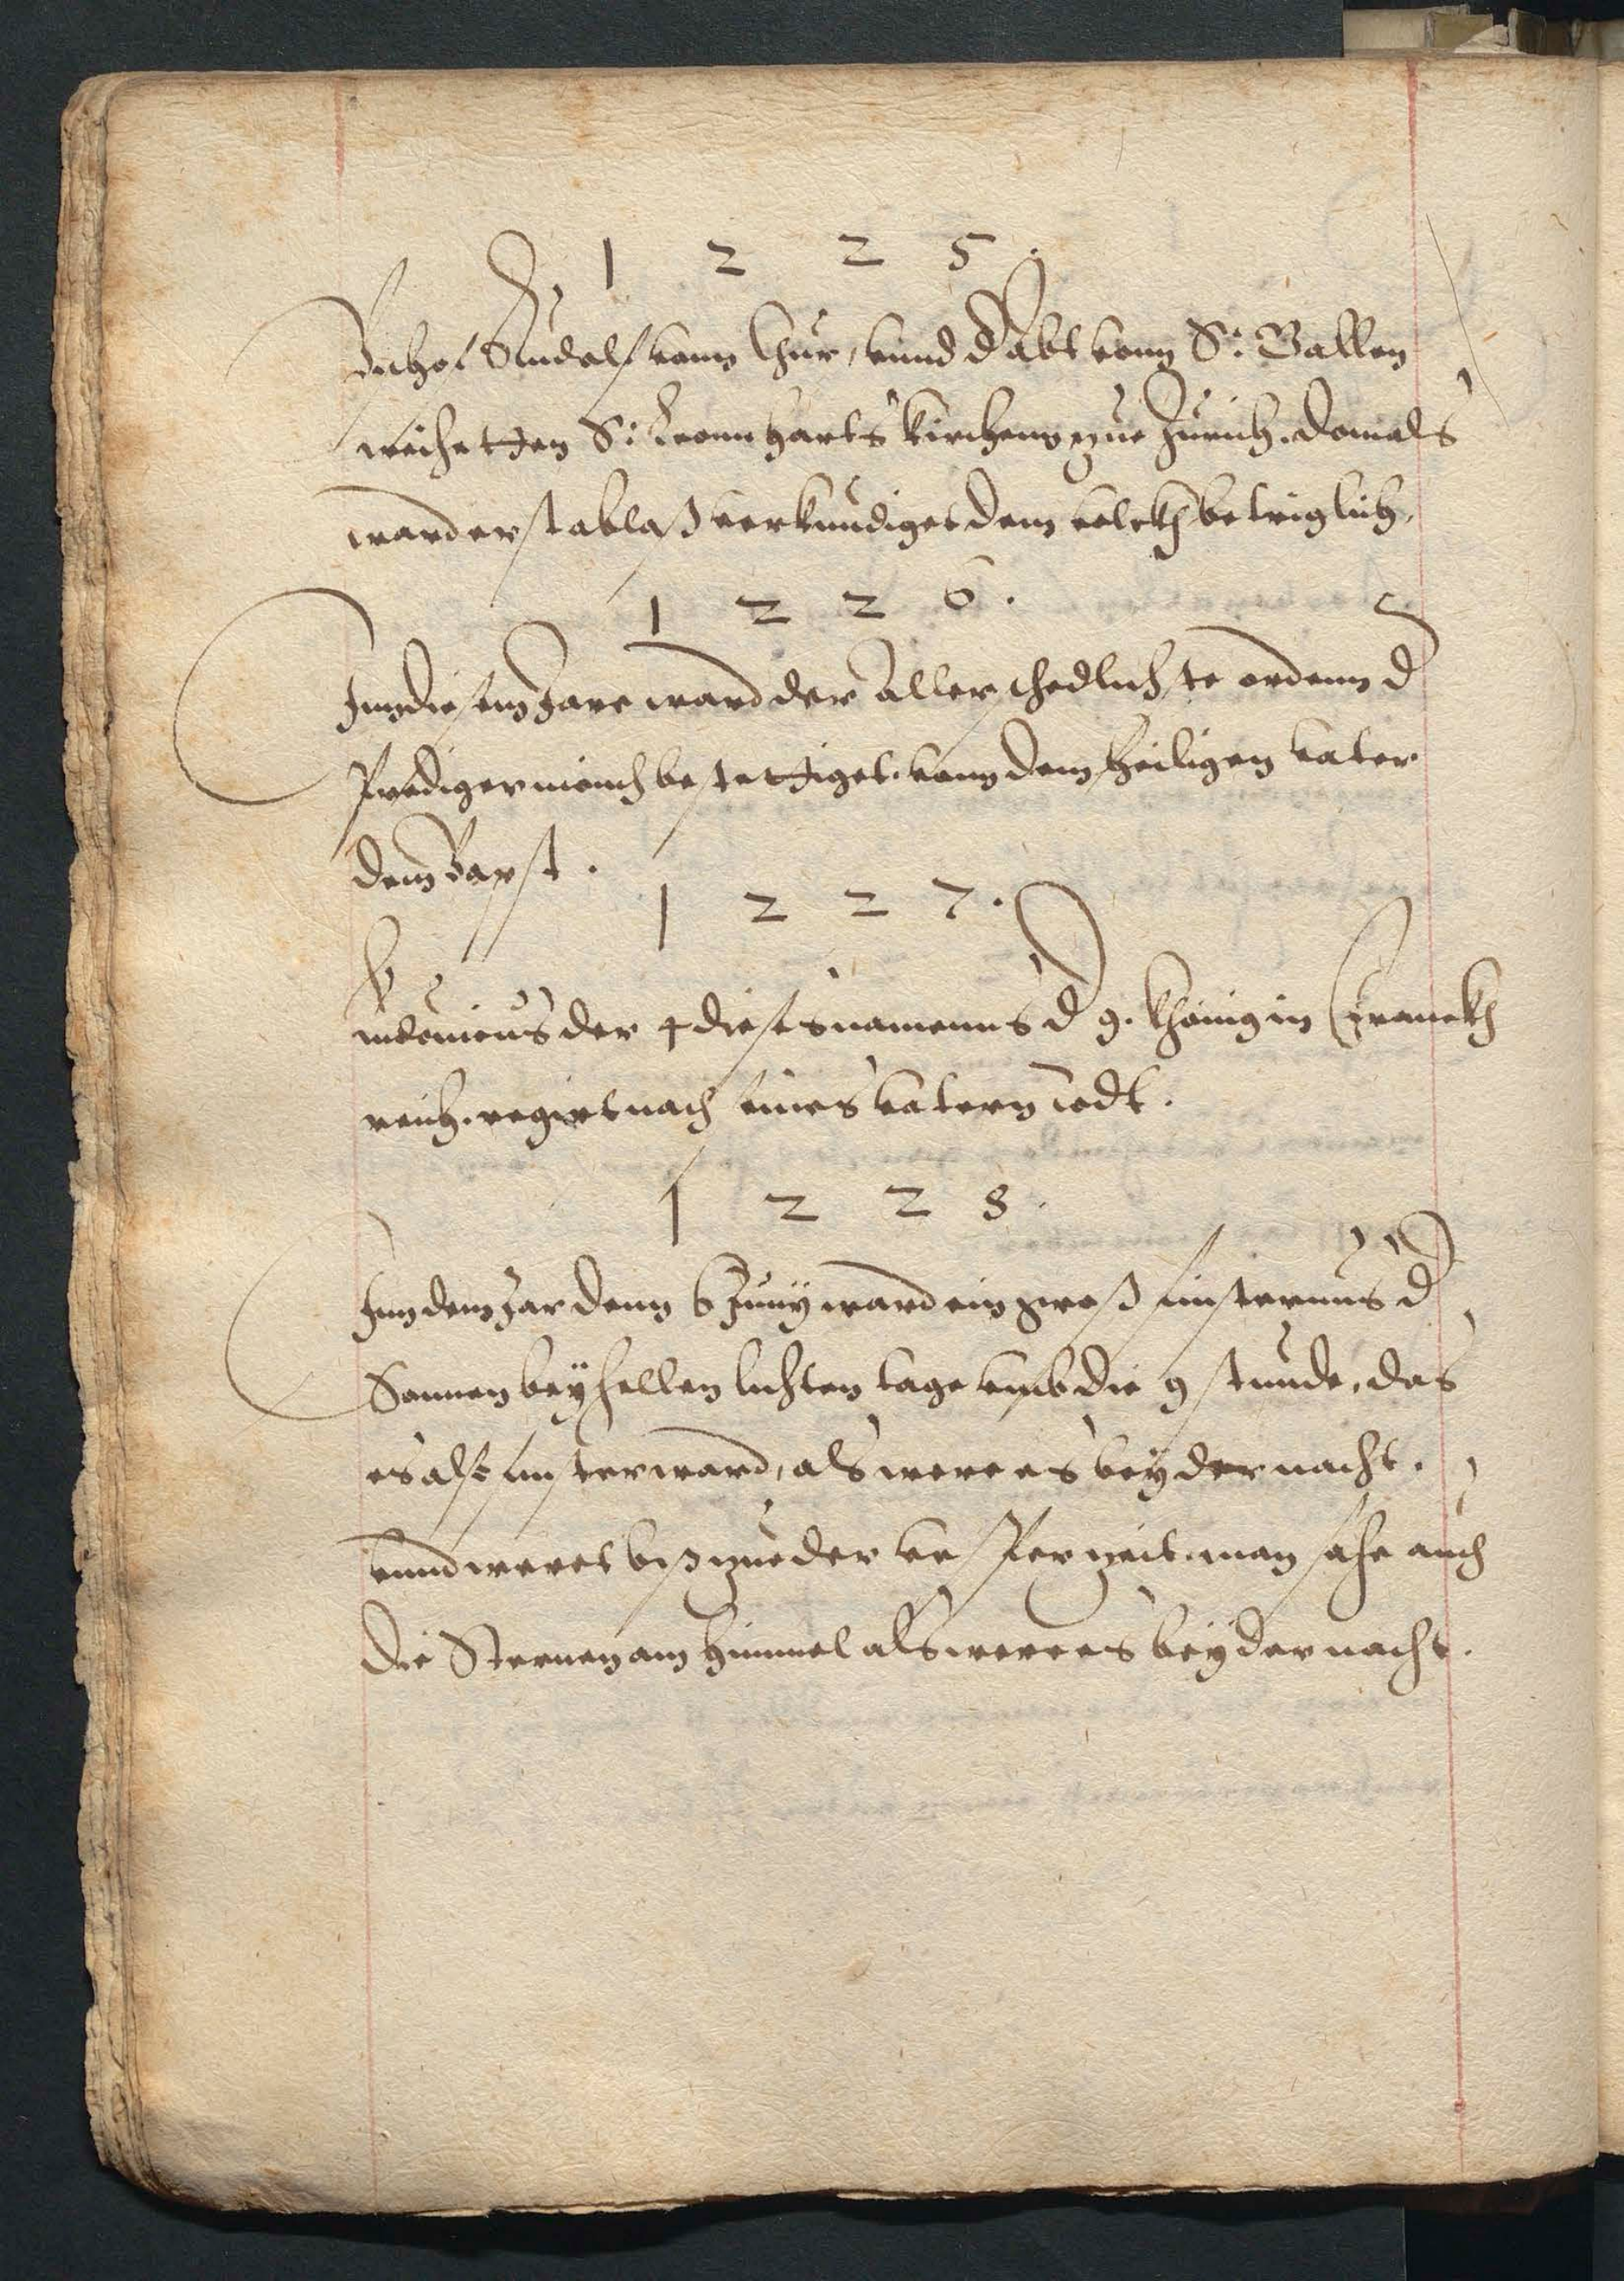 1 2 2 5.
Bischof Rudolf vonn Chur, vnnd d Abt vonn S: Gallen
weihetten S: Leonnharts kirchenn zue Zurich. domals
ward erst ablaß verkundiget dem volckh betriglich.
1 2 2 6.
Inn diesem Jare ward der Aller schedlichste ordenn d
Predigermönch bestettiget vonn dem heiligen vater
dem Bapst.
1 2 2 7.
Ludouicus der 4 dieses namenns d 9. Khönig in Franckh
reich. regiert nach seines vatern todt.
1 2 2 8.
Inn dem Jar denn 6 Junij ward ein groß finsternus d
Sonnen bey hellen lichten tage vmb die 9 stunde, das
es also finster ward, als were es bey der nacht.
vnnd weret biß zue der vesper zeit. man sahe auch
die Sternen am himmel als were es bey der nacht.